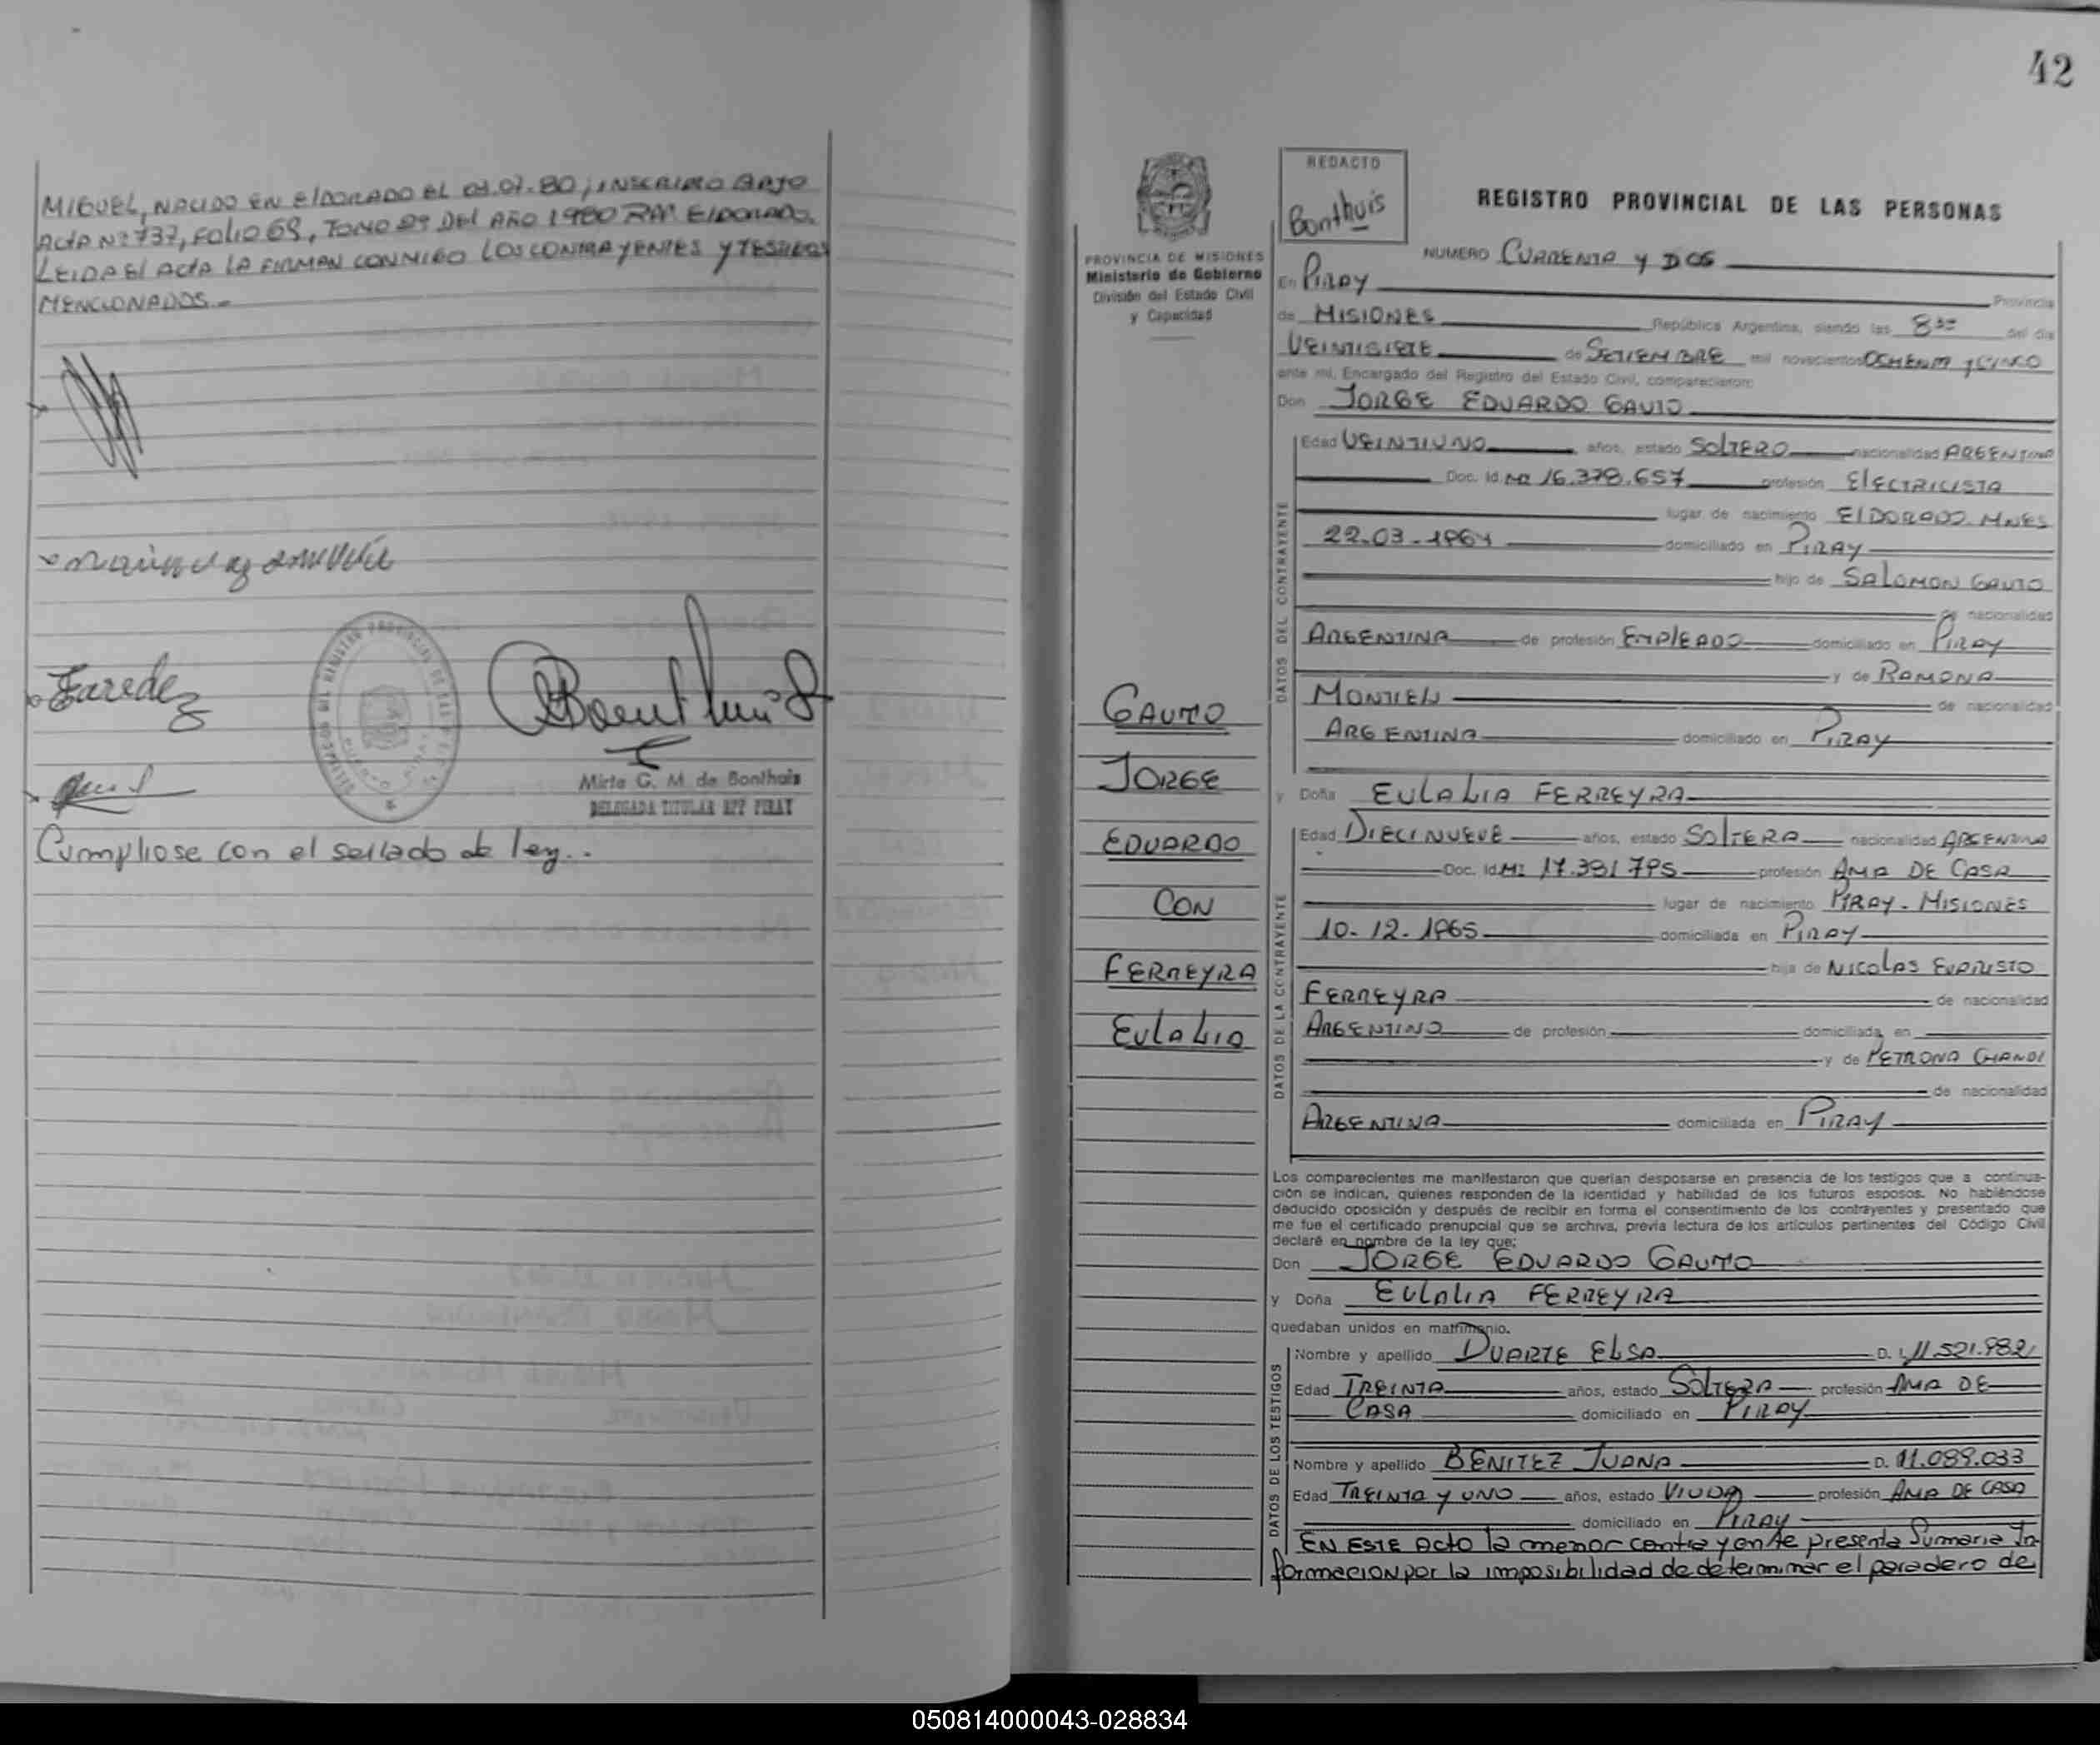 MIGUEL, NACIDO EN ELDORADO EL 07.80; INSCRIPTO BAJO
ACTA Nº 737, FOLIO 69, TOMO DEL AÑO 1980 ELDORADO.
LEIDA EL ACTA LA FIRMAN CONMIGO LOS CONTRAYENTES Y TESTIGOS
MENCIONADOS.-
Mirta G. M. de Bonthuis
DELEGADA TITULAR RPP PIRAY
Cumpliose con el sellado de ley..
42
PROVINCIA DE MISIONES
Ministerio de Gobierno
División del Estado Civil
y Capacidad
GAUTO
JORGE
EDUARDO
CON
FERREYRA
EULALIA
REDACTO
Bonthuis
REGISTRO PROVINCIAL DE LAS PERSONAS
NUMERO CUARENTA Y DOS
En PIRAY Provincia
de MISIONES República Argentina, siendo las 8 00 del día
VEINTISIETE de SETIEMBRE mil novecientos OCHENTA Y CINCO
ante mi, Encargado del Registro del Estado Civil, comparecieron:
Don JORGE EDUARDO GAUTO
DATOS DEL CONTRAYENTE
Edad VEINTIUNO años, estado SOLTERO nacionalidad ARGENTINA
Doc. Id. 16.378.657 profesión ELECTRICISTA
lugar de nacimiento ELDORADO MNES
22-03-1964 domiciliado en PIRAY
hijo de SALOMON GAUTO
de nacionalidad
ARGENTINA de profesión EMPLEADO domiciliado en PIRAY
y de RAMONA
MONTIEL de nacionalidad
ARGENTINA domiciliado en PIRAY
y Doña EULALIA FERREYRA
DATOS DE LA CONTRAYENTE
Edad DIECINUEVE años, estado SOLTERA nacionalidad ARGENTINA
Doc. Id. MI 17.391795 profesión AMA DE CASA
lugar de nacimiento PIRAY-MISIONES
10-12-1965 domiciliada en PIRAY
hija de NICOLAS EVARISTO
FERREYRA de nacionalidad
ARGENTINO de profesión domiciliada en
y de PETRONA
de nacionalidad
ARGENTINA domiciliada en PIRAY
Los comparecientes me manifestaron que querían desposarse en presencia de los testigos que a continua-
ción se indican, quienes responden de la identidad y habilidad de los futuros esposos. No habiéndose
deducido oposición y después de recibir en forma el consentimiento de los contrayentes y presentado que
me fue el certificado prenupcial que se archiva, previa lectura de los artículos pertinentes del Código Civil
declaré en nombre de la ley que:
Don JORGE EDUARDO GAUTO
y Doña EULALIA FERREYRA
quedaban unidos en matrimonio.
DATOS DE LOS TESTIGOS
Nombre y apellido DUARTE ELSA D. 11.521.982
Edad TREINTA años, estado SOLTERA profesión AMA DE
CASA domiciliado en PIRAY
Nombre y apellido BENITEZ JUANA D. 11.089.033
Edad TREINTA Y UNO años, estado VIUDA profesión AMA DE CASA
domiciliado en PIRAY
EN ESTE Acto la menor contrayente presenta Sumaria In
formacion por la imposibilidad de determinar el paradero de
050814000043-028834